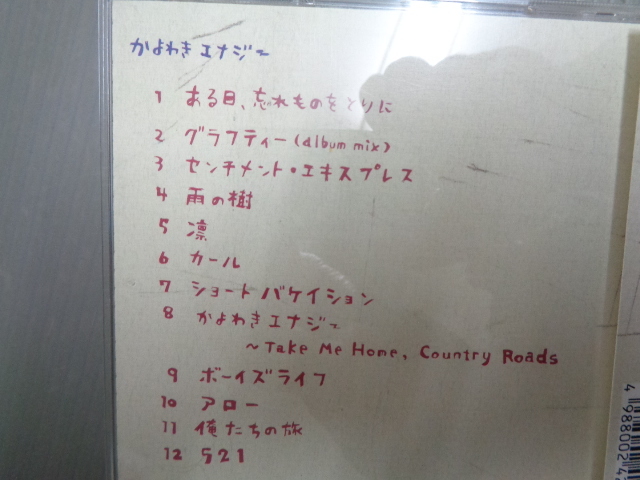 かよわきエナジー
1 ある日、忘れものをとりに
2 グラフティー(album mix)
3 センチメント・エキスプレス
4 雨の樹
5 凛
6 カール
7 ショートバケイション
8 かよわきエナジー
~Take Me Home, Country Roads
9 ボーイズライフ
10 アロー
11 俺たちの旅
12 521